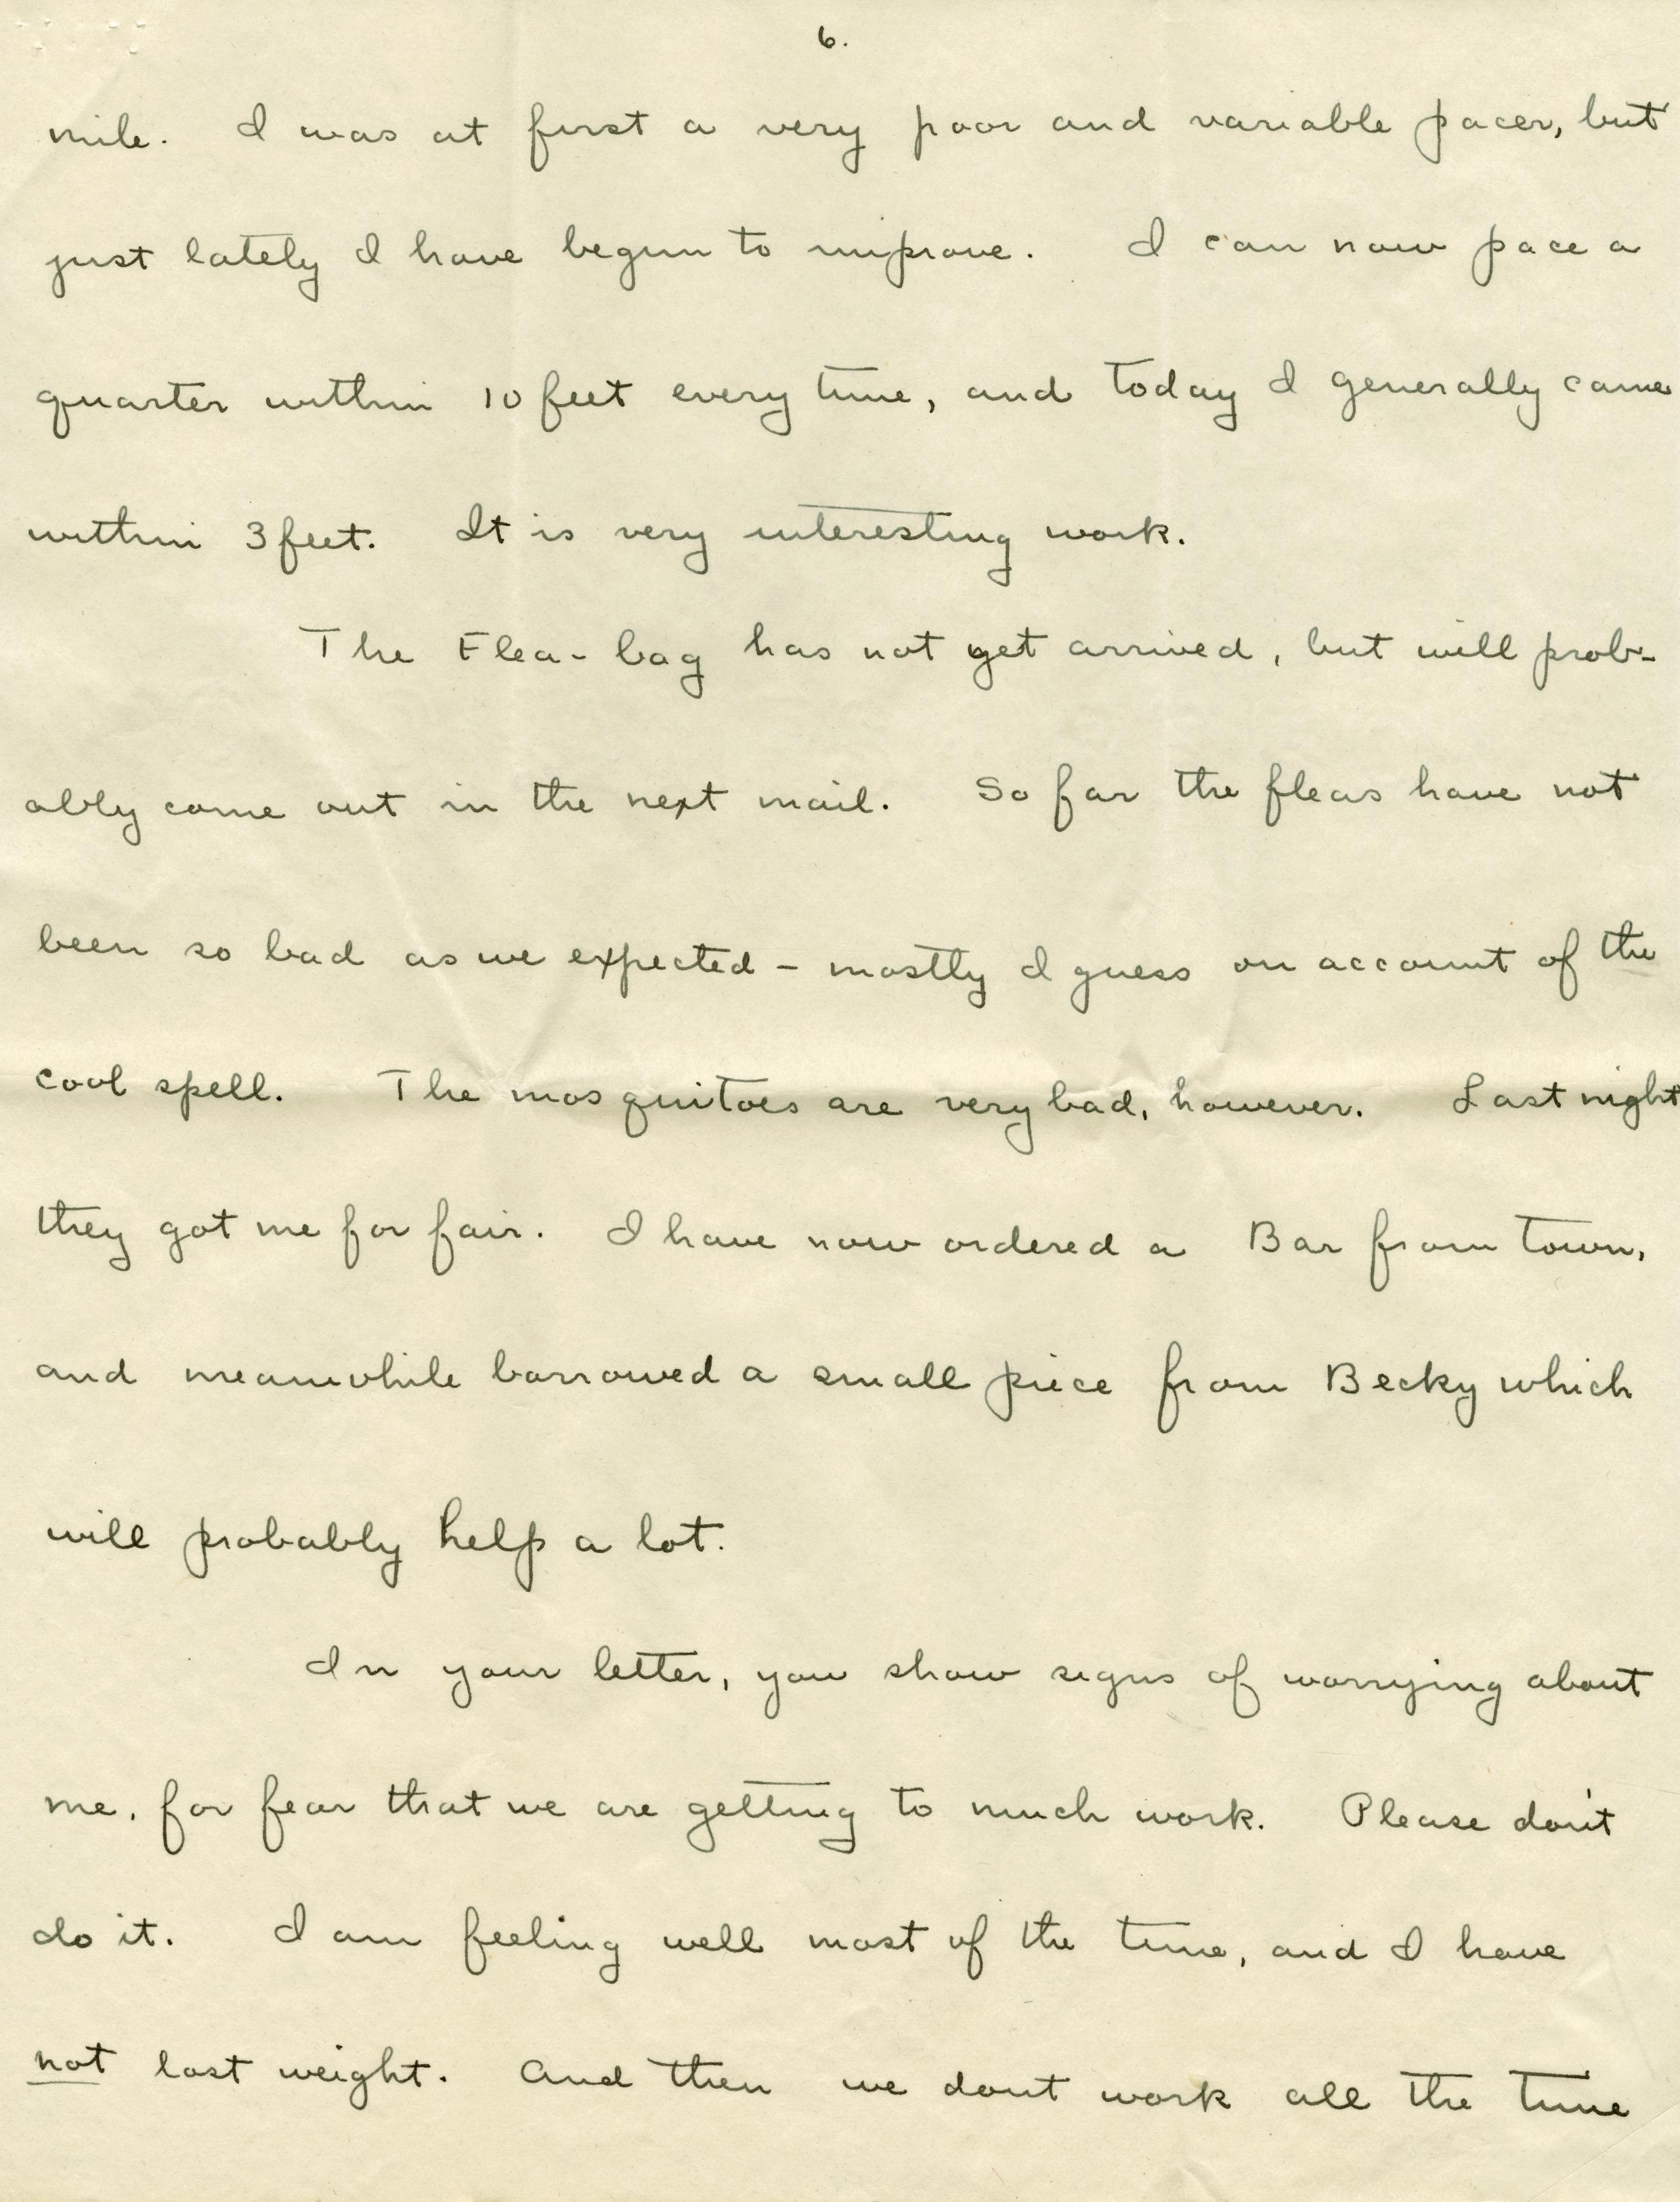 6.
mile. I was at first a very poor and variable pacer, but
just lately I have begun to improve. I can now pace a
quarter within 10 feet every time, and today I generally came
within 3 feet. It is very interesting work.
The Flea-bag has not yet arrived, but will prob-
ably come out in the next mail. So far the fleas have not
been so bad as we expected - mostly I guess on account of the
cool spell. The mosquitoes are very bad, however. Last night
they got me for fair. I have now ordered a Bar from town,
and meanwhile borrowed a small piece from Becky which
will probably help a lot.
In your letter, you show signs of worrying about
me, for fear that we are getting to much work. Please don't
do it. I am feeling well most of the time, and I have
not lost weight. And then we dont work all the time